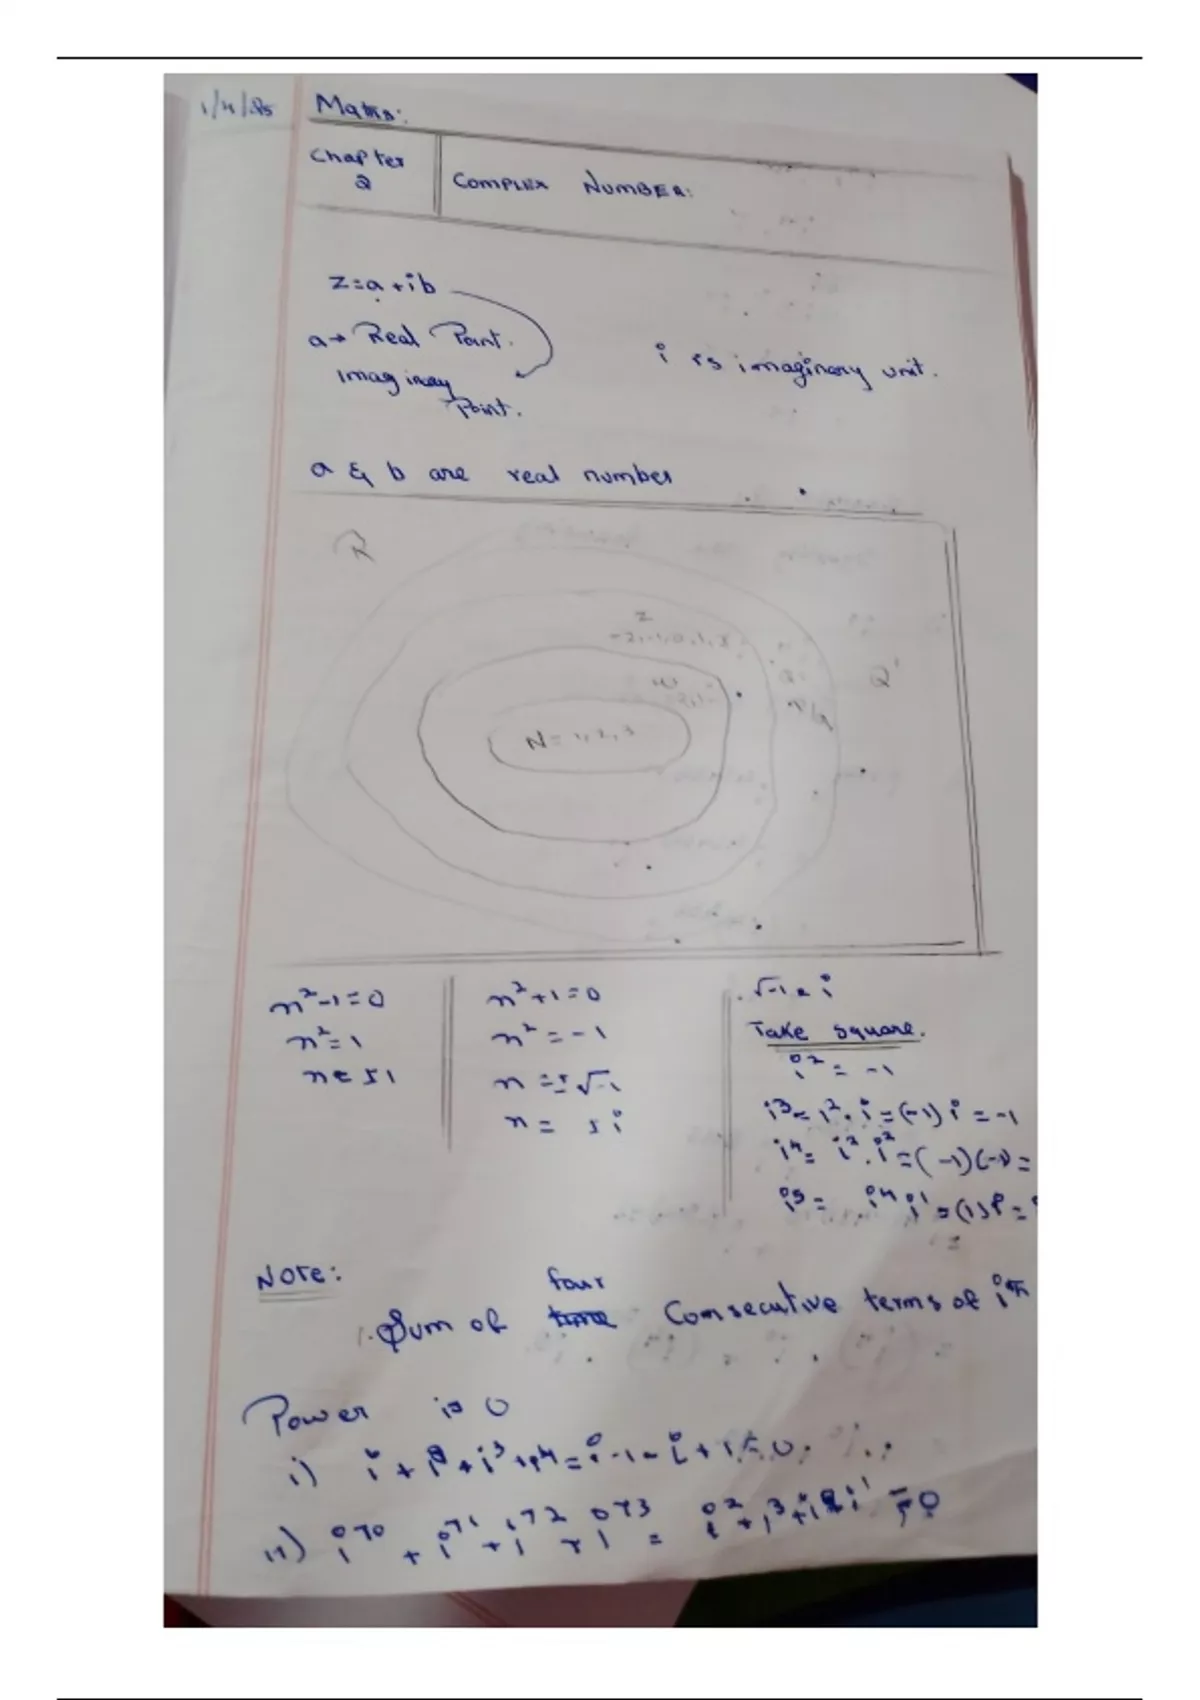 1/4/25 Maths:
Chapter 2
COMPLEX NUMBER:
z = a + ib
a → Real Point.
Imaginary Point.
i is imaginary unit.
a & b are real number
R
Z
-2,-1,0,1,2
W
Q'
P/q
N = 1,2,3
n² - 1 = 0
n² = 1
n² + 1 = 0
n² = -1
n = ± √-1
√-1 = i
Take square.
i² = -1
i³ = i² . i = (-1) i = -1
i⁴ = i² . i² = (-1)(-1) =
i⁵ = i⁴ i¹ = (1) i =
NOTE:
1. Sum of four Comsecutive terms of iⁿ
Power is 0
i) i + i² + i³ + i⁴ = i - 1 - i + 1 = 0.
ii) i⁷⁰ + i⁷¹ + i⁷² + i⁷³ =